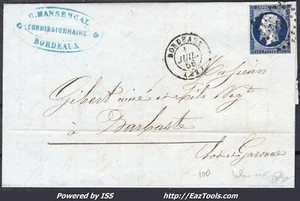 C. MANSENCAL
COMMISSIONNAIRE
BORDEAUX
BORDEAUX
1
JUIL.
56
(32)
Messieurs
Gibert ainé et Fils Negts
à Barbaste
Lot et Garonne
100
Powered by ISS
http://EazTools.Com